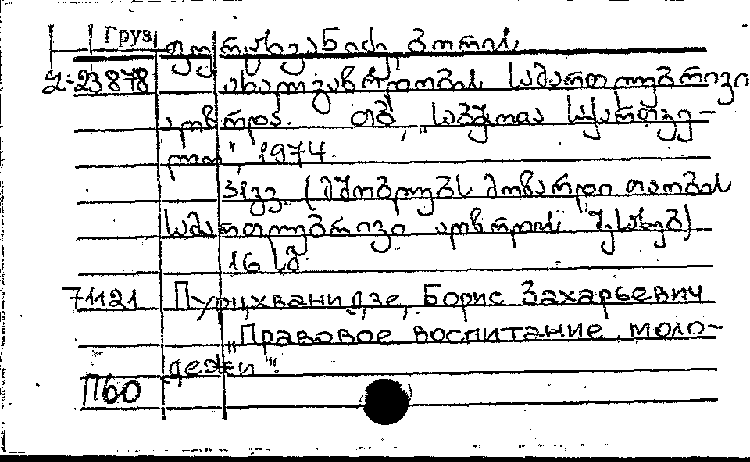 Груз
ფურცხვანიძე, ბორის
2-23878 ახალგაზრდობის სამართლებრივი
აღზრდა. თბ., „საბჭოთა საქართვე-
ლო", 1974.
31გვ. (მშობლებს მოზარდი თაობის
სამართლებრივი აღზრდის შესახებ)
16 სმ.
71121 Пурцхванидзе, Борис Захарьевич
„Правовое воспитание моло-
дежи".
П60